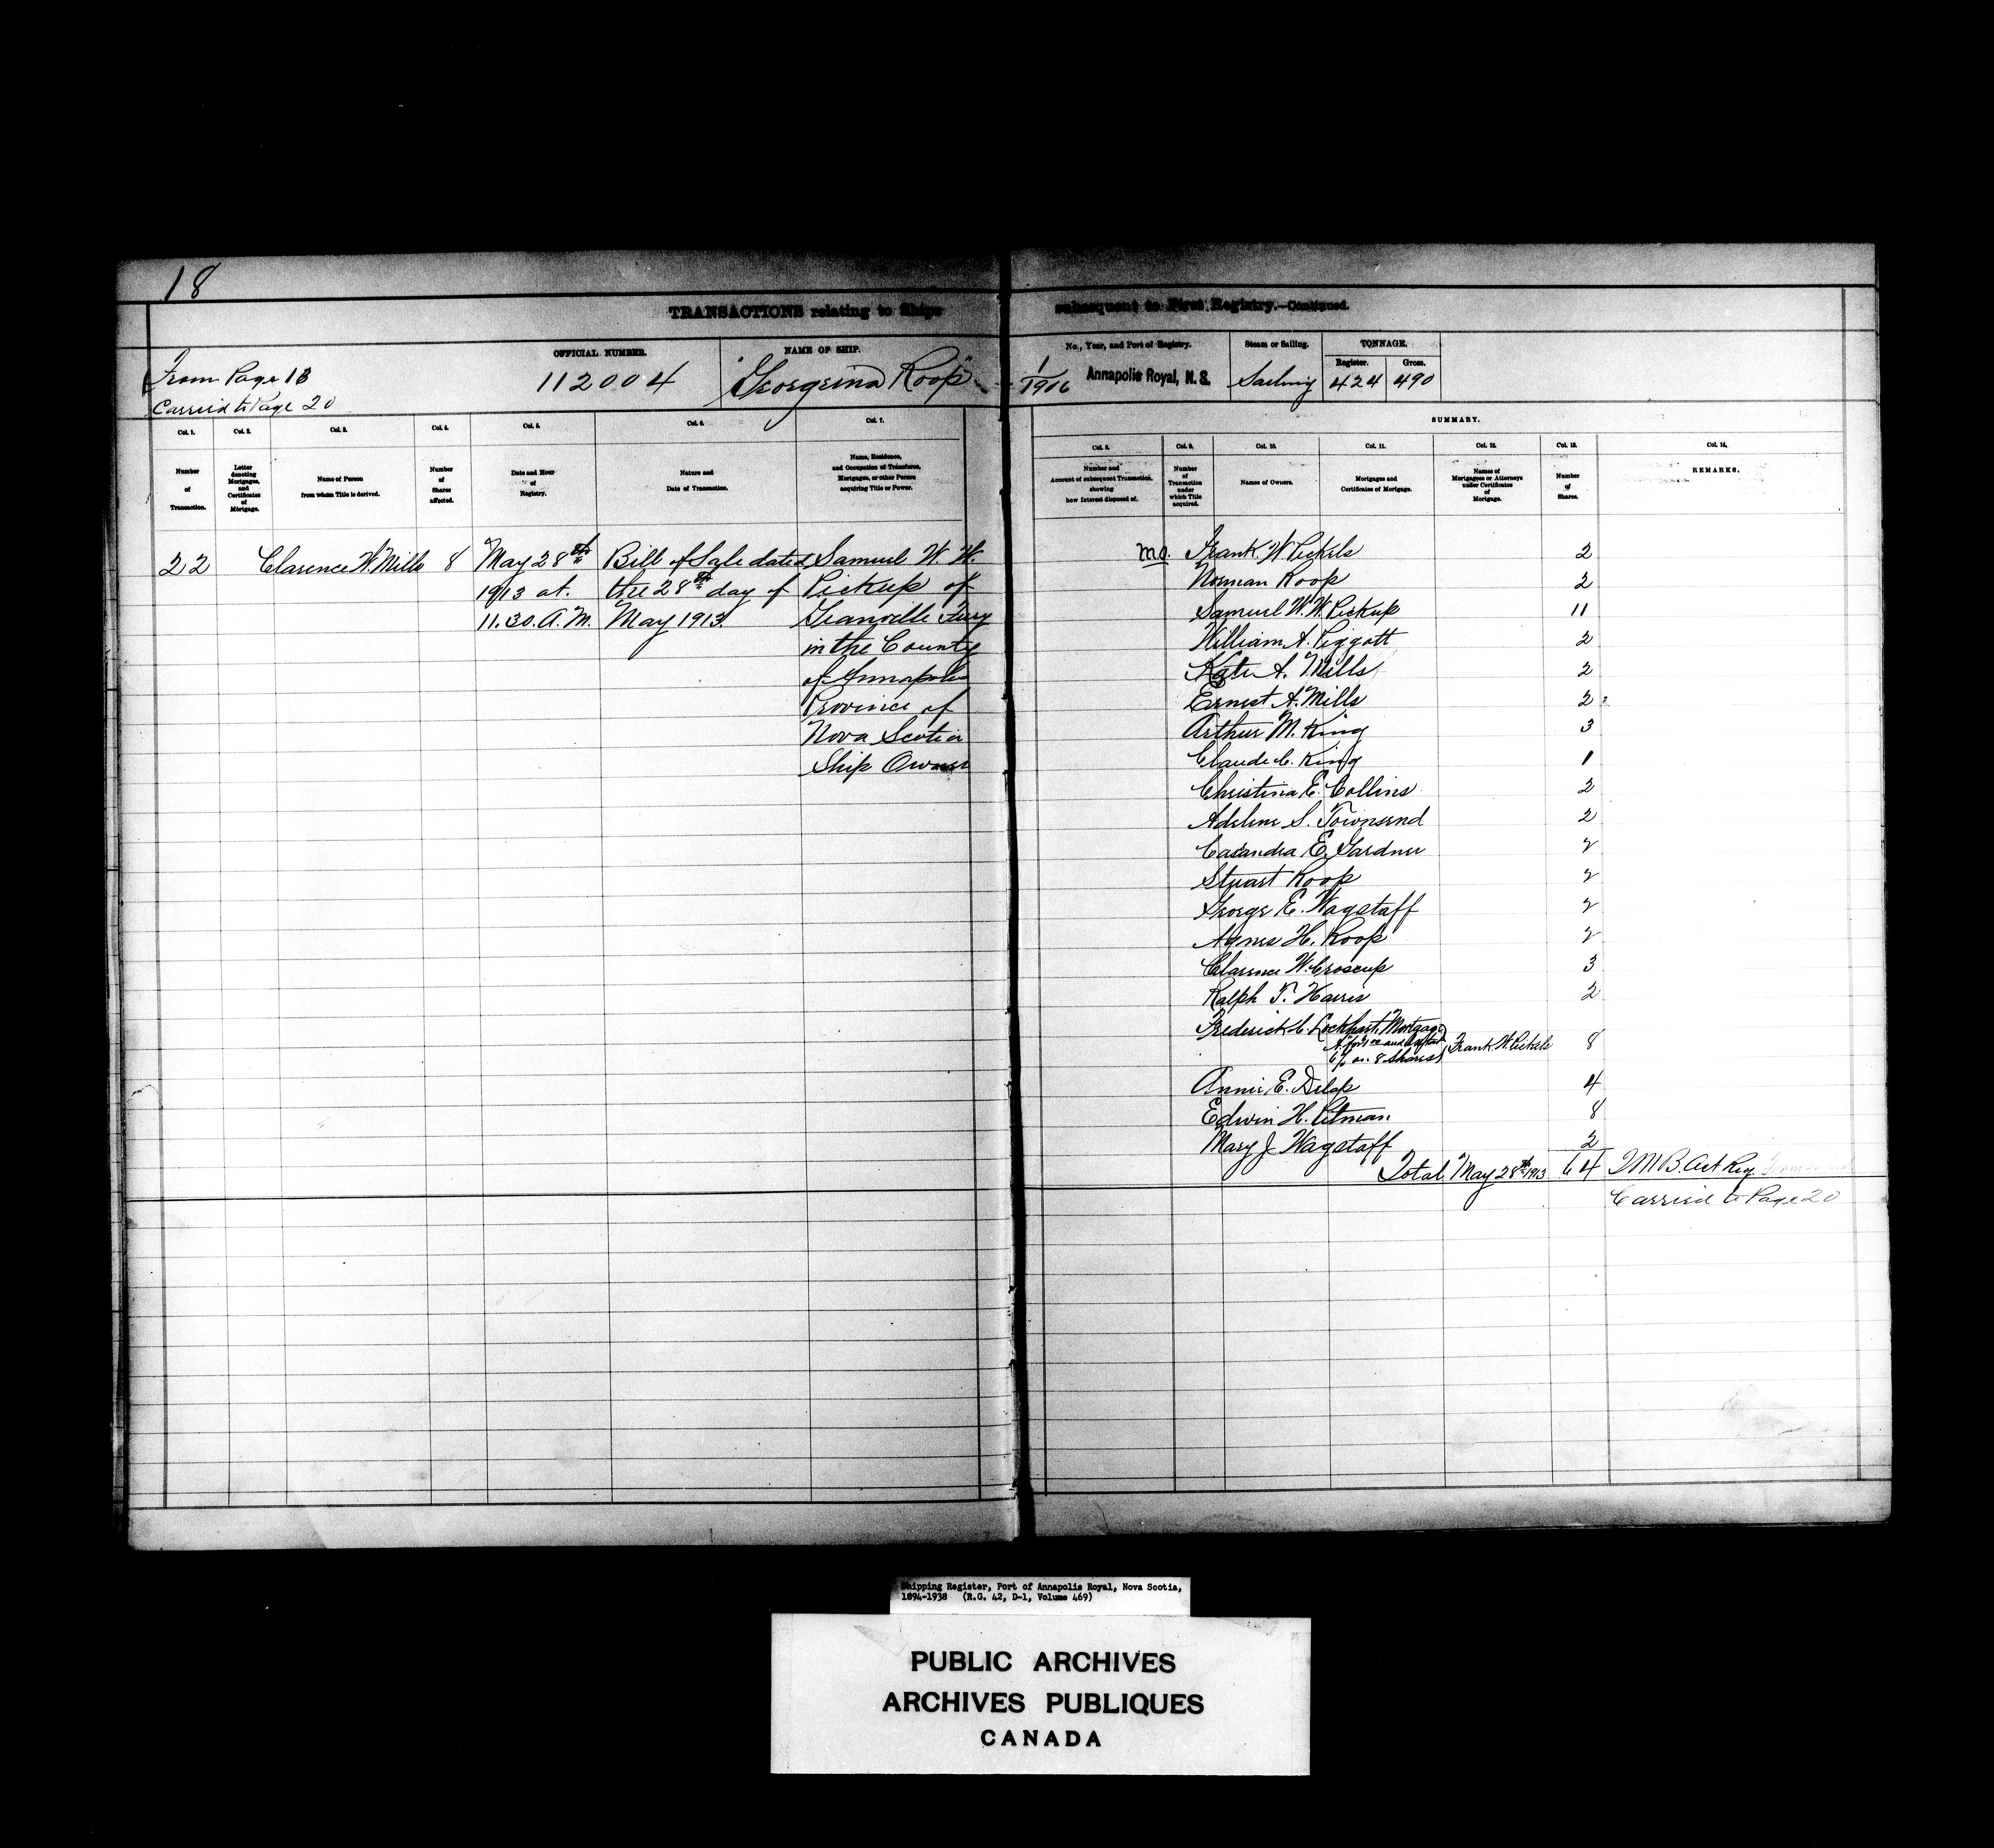 18
TRANSACTIONS relating to Ships subsequent to First Registry.—Continued.
From Page 13
Carried to Page 20
OFFICIAL NUMBER.
112004
NAME OF SHIP.
"Georgina Roop"
No., Year, and Port of Registry.
1/1906 Annapolis Royal, N.S.
Steam or Sailing.
Sailing
TONNAGE.
Register. Gross.
424 490
SUMMARY.
Col. 1. Col. 2. Col. 3. Col. 4. Col. 5. Col. 6. Col. 7.
Number of Transaction.
Letter denoting Mortgages, and Certificates of Mortgage.
Name of Person from whom Title is derived.
Number of Shares affected.
Date and Hour of Registry.
Nature and Date of Transaction.
Name, Residence, and Occupation of Transferee, Mortgagee, or other Person acquiring Title or Power.
Col. 8. Col. 9. Col. 10. Col. 11. Col. 12. Col. 13. Col. 14.
Number and Account of subsequent Transaction, showing how Interest disposed of.
Number of Transaction under which Title acquired.
Names of Owners.
Mortgages and Certificates of Mortgage.
Names of Mortgagees or Attorneys under Certificates of Mortgage.
Number of Shares.
REMARKS.
22 Clarence W. Mills 8 May 28th Bill of Sale dated Samuel W. W.
1913 at. the 28th day of Pickup of
11.30. A.M. May 1913. Granville Ferry
in the County
of Annapolis
Province of
Nova Scotia
Ship Owner
M.O. Frank. W. Pickels 2
Norman Roop 2
Samuel W. W. Pickup 11
William A. Piggott 2
Kate A. Mills 2
Ernest A. Mills 2
Arthur M. King 3
Claude C. King 1
Christina E. Collins 2
Adeline S. Townsend 2
Casandra E. Gardner 2
Stuart Roop 2
George E. Wagstaff 2
Agnes H. Roop 2
Clarence W. Croscup 3
Ralph T. Harris 2
Frederick C. Lockhart. Mortgage
"A" for and
6% on 8 Shares Frank W. Pickels 8
Annie E. Delap 4
Edwin H. Pitman 8
Mary J Wagstaff 2
Total May 28th 1913 64 Reg.
Carried to Page 20
Shipping Register, Port of Annapolis Royal, Nova Scotia,
1894-1938 (R.G. 42, D-1, Volume 469)
PUBLIC ARCHIVES
ARCHIVES PUBLIQUES
CANADA